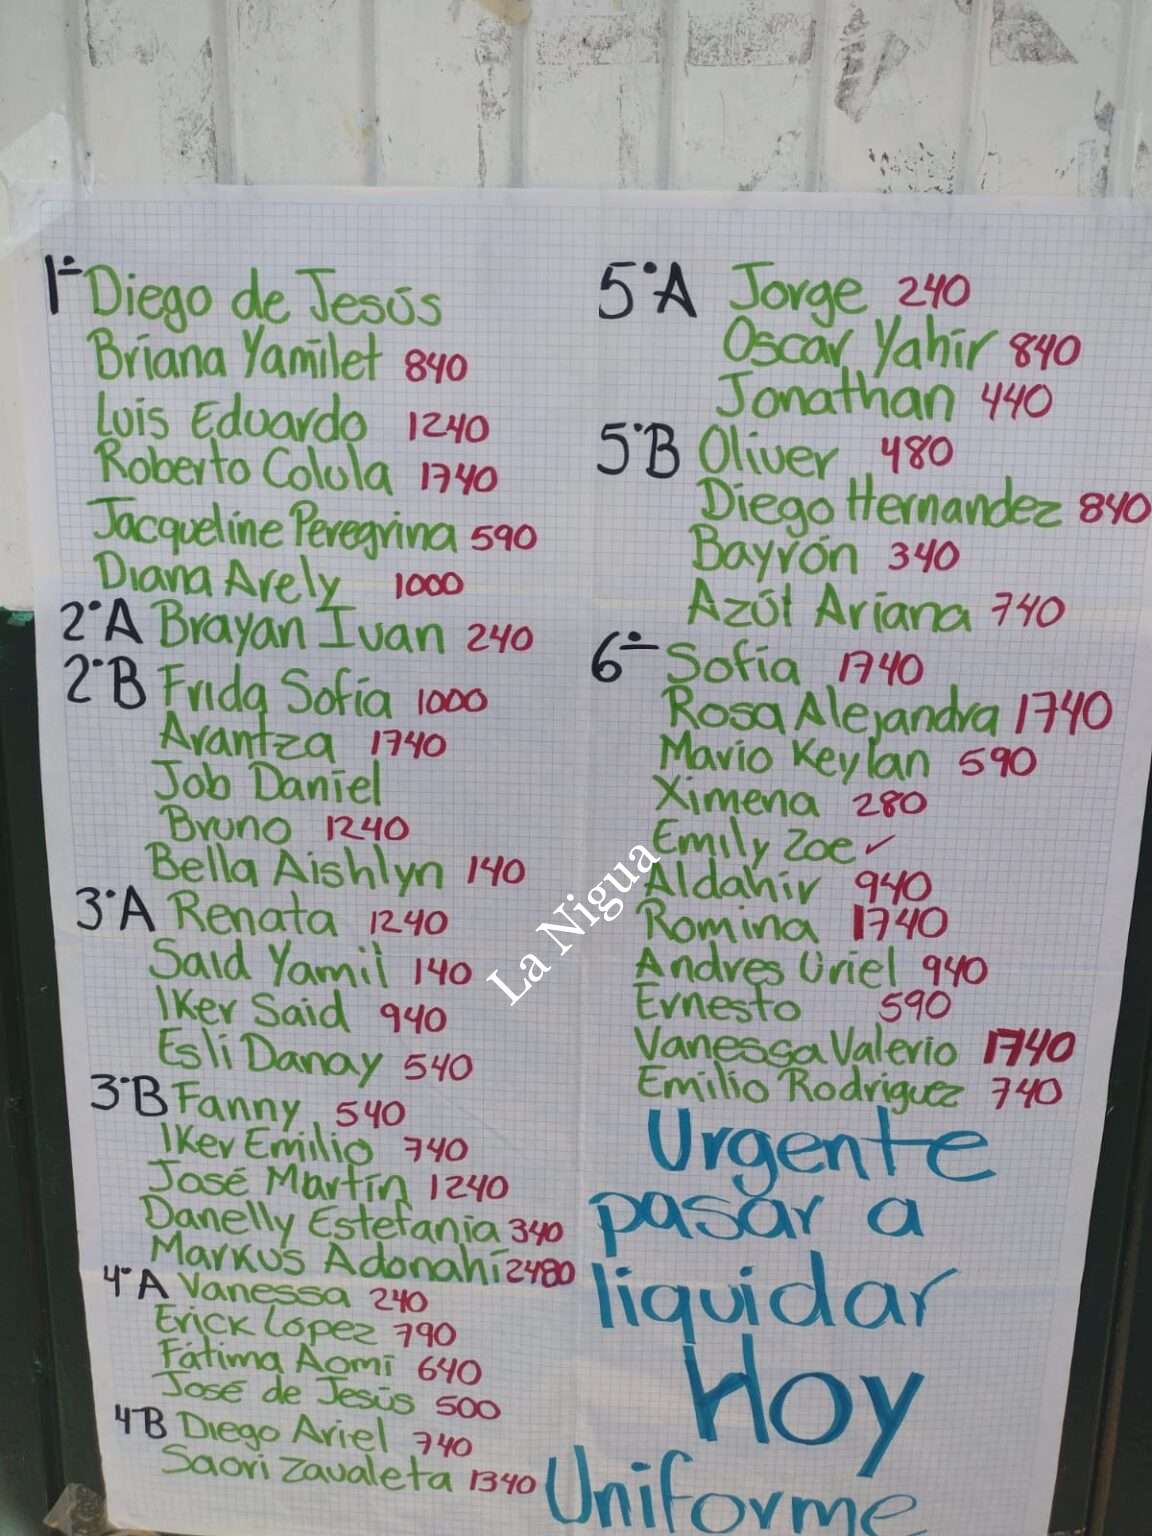 1° Diego de Jesús
Briana Yamilet 840
Luis Eduardo 1240
Roberto Colula 1740
Jacqueline Peregrina 590
Diana Arely 1000
2°A Brayan Ivan 240
2°B Frida Sofía 1000
Arantza 1740
Job Daniel
Bruno 1240
Bella Aishlyn 140
3°A Renata 1240
Said Yamil 140
Iker Said 940
Esli Danay 540
3°B Fanny 540
Iker Emilio 740
José Martín 1240
Danelly Estefania 340
Markus Adonahí 2480
4°A Vanessa 240
Erick Lopez 790
Fátima Aomi 640
José de Jesús 500
4°B Diego Ariel 740
Saori Zavaleta 1340
5°A Jorge 240
Oscar Yahir 840
Jonathan 440
5°B Oliver 480
Diego Hernandez 840
Bayrón 340
Azúl Ariana 740
6° Sofía 1740
Rosa Alejandra 1740
Mario Keylan 590
Ximena 280
Emily Zoe ✓
Aldahir 940
Romina 1740
Andres Uriel 940
Ernesto 590
Vanessa Valerio 1740
Emilio Rodriguez 740
Urgente
pasar a
liquidar
Hoy
Uniforme
La Nigua